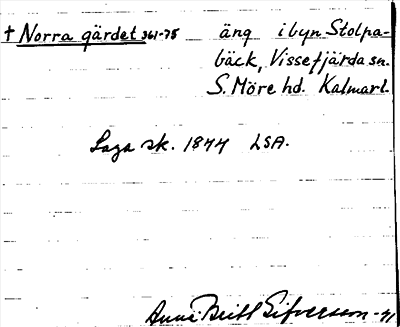 † Norra gärdet 361-78 äng i byn Stolpa-
bäck, Vissefjärda sn.
S. Möre hd. Kalmar l.
Laga sk. 1844 LSA.
Anna Britt Sifversson -71